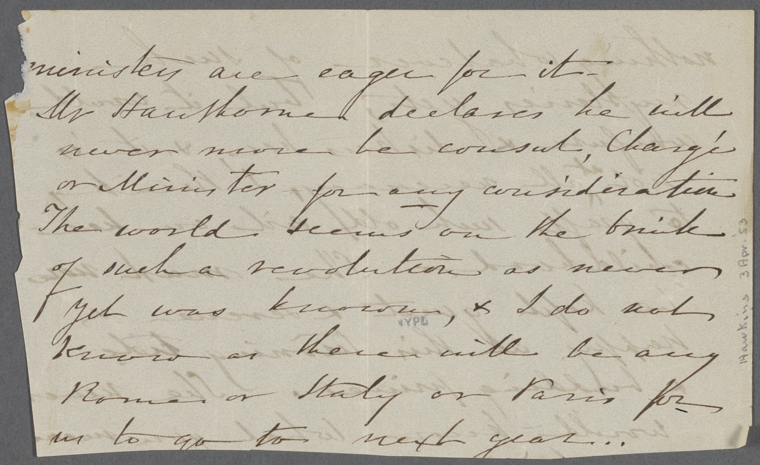 ministers are eager for it -
Mr Hawthorne declares he will
never more be consul, Chargé
or Minister for any consideration
The world seems on the brink
of such a revolution as never
yet was known, & I do not
know as there will be any
Rome or Italy or Paris for
us to go to next year..
NYPL
Hawkins 3 Apr. 53